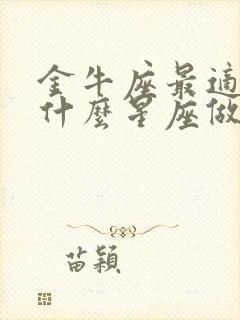 金牛座最適
什麼星座做
苗穎